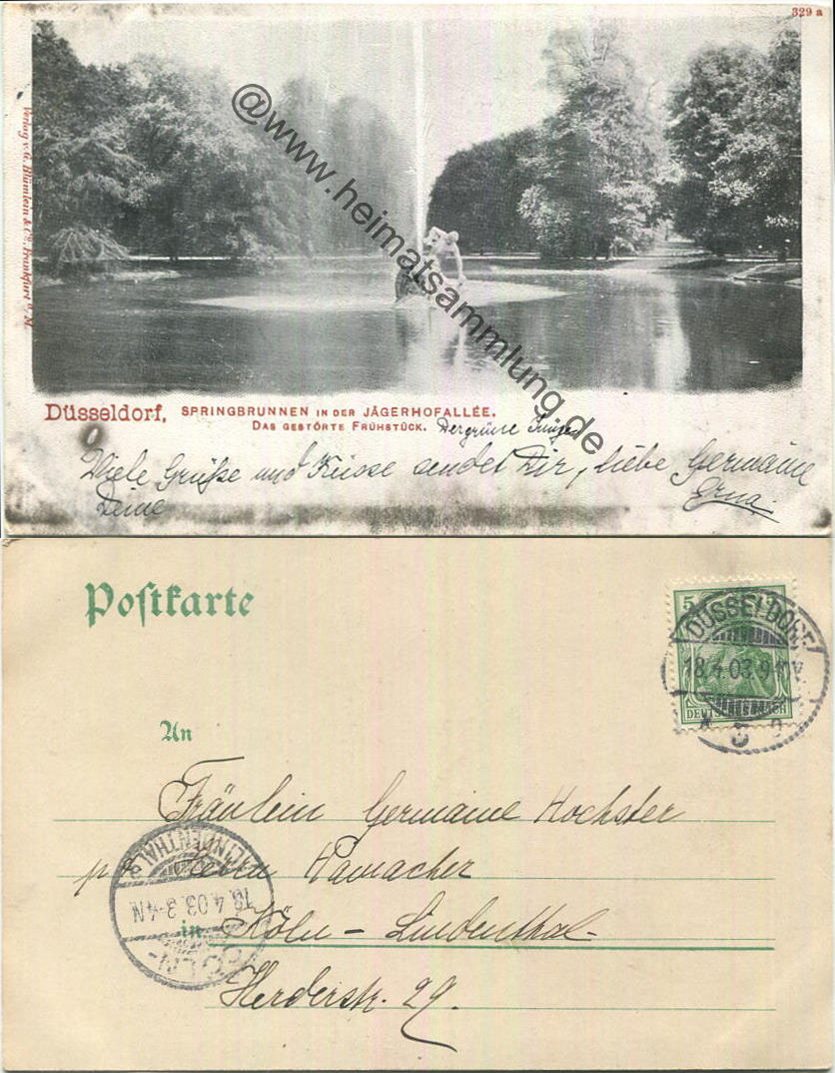 329 a
Verlag v. G. Blümlein & Co. Frankfurt a/M
@www.heimatsammlung.de
Düsseldorf, SPRINGBRUNNEN IN DER JÄGERHOFALLÉE.
DAS GESTÖRTE FRÜHSTÜCK.
Viele Grüße und Küsse sendet Dir, liebe Germaine
Deine Erna.
Postkarte
5
DEUTSCHES REICH
DÜSSELDORF
18.4.03. 9-10V
* 5 g
An
Fräulein Germaine Hochster
Herrn Hamacher
in Köln-Lindenthal-
Herderstr. 29.
CÖLN-
18.4.03. 3-4N
LINDENTHAL